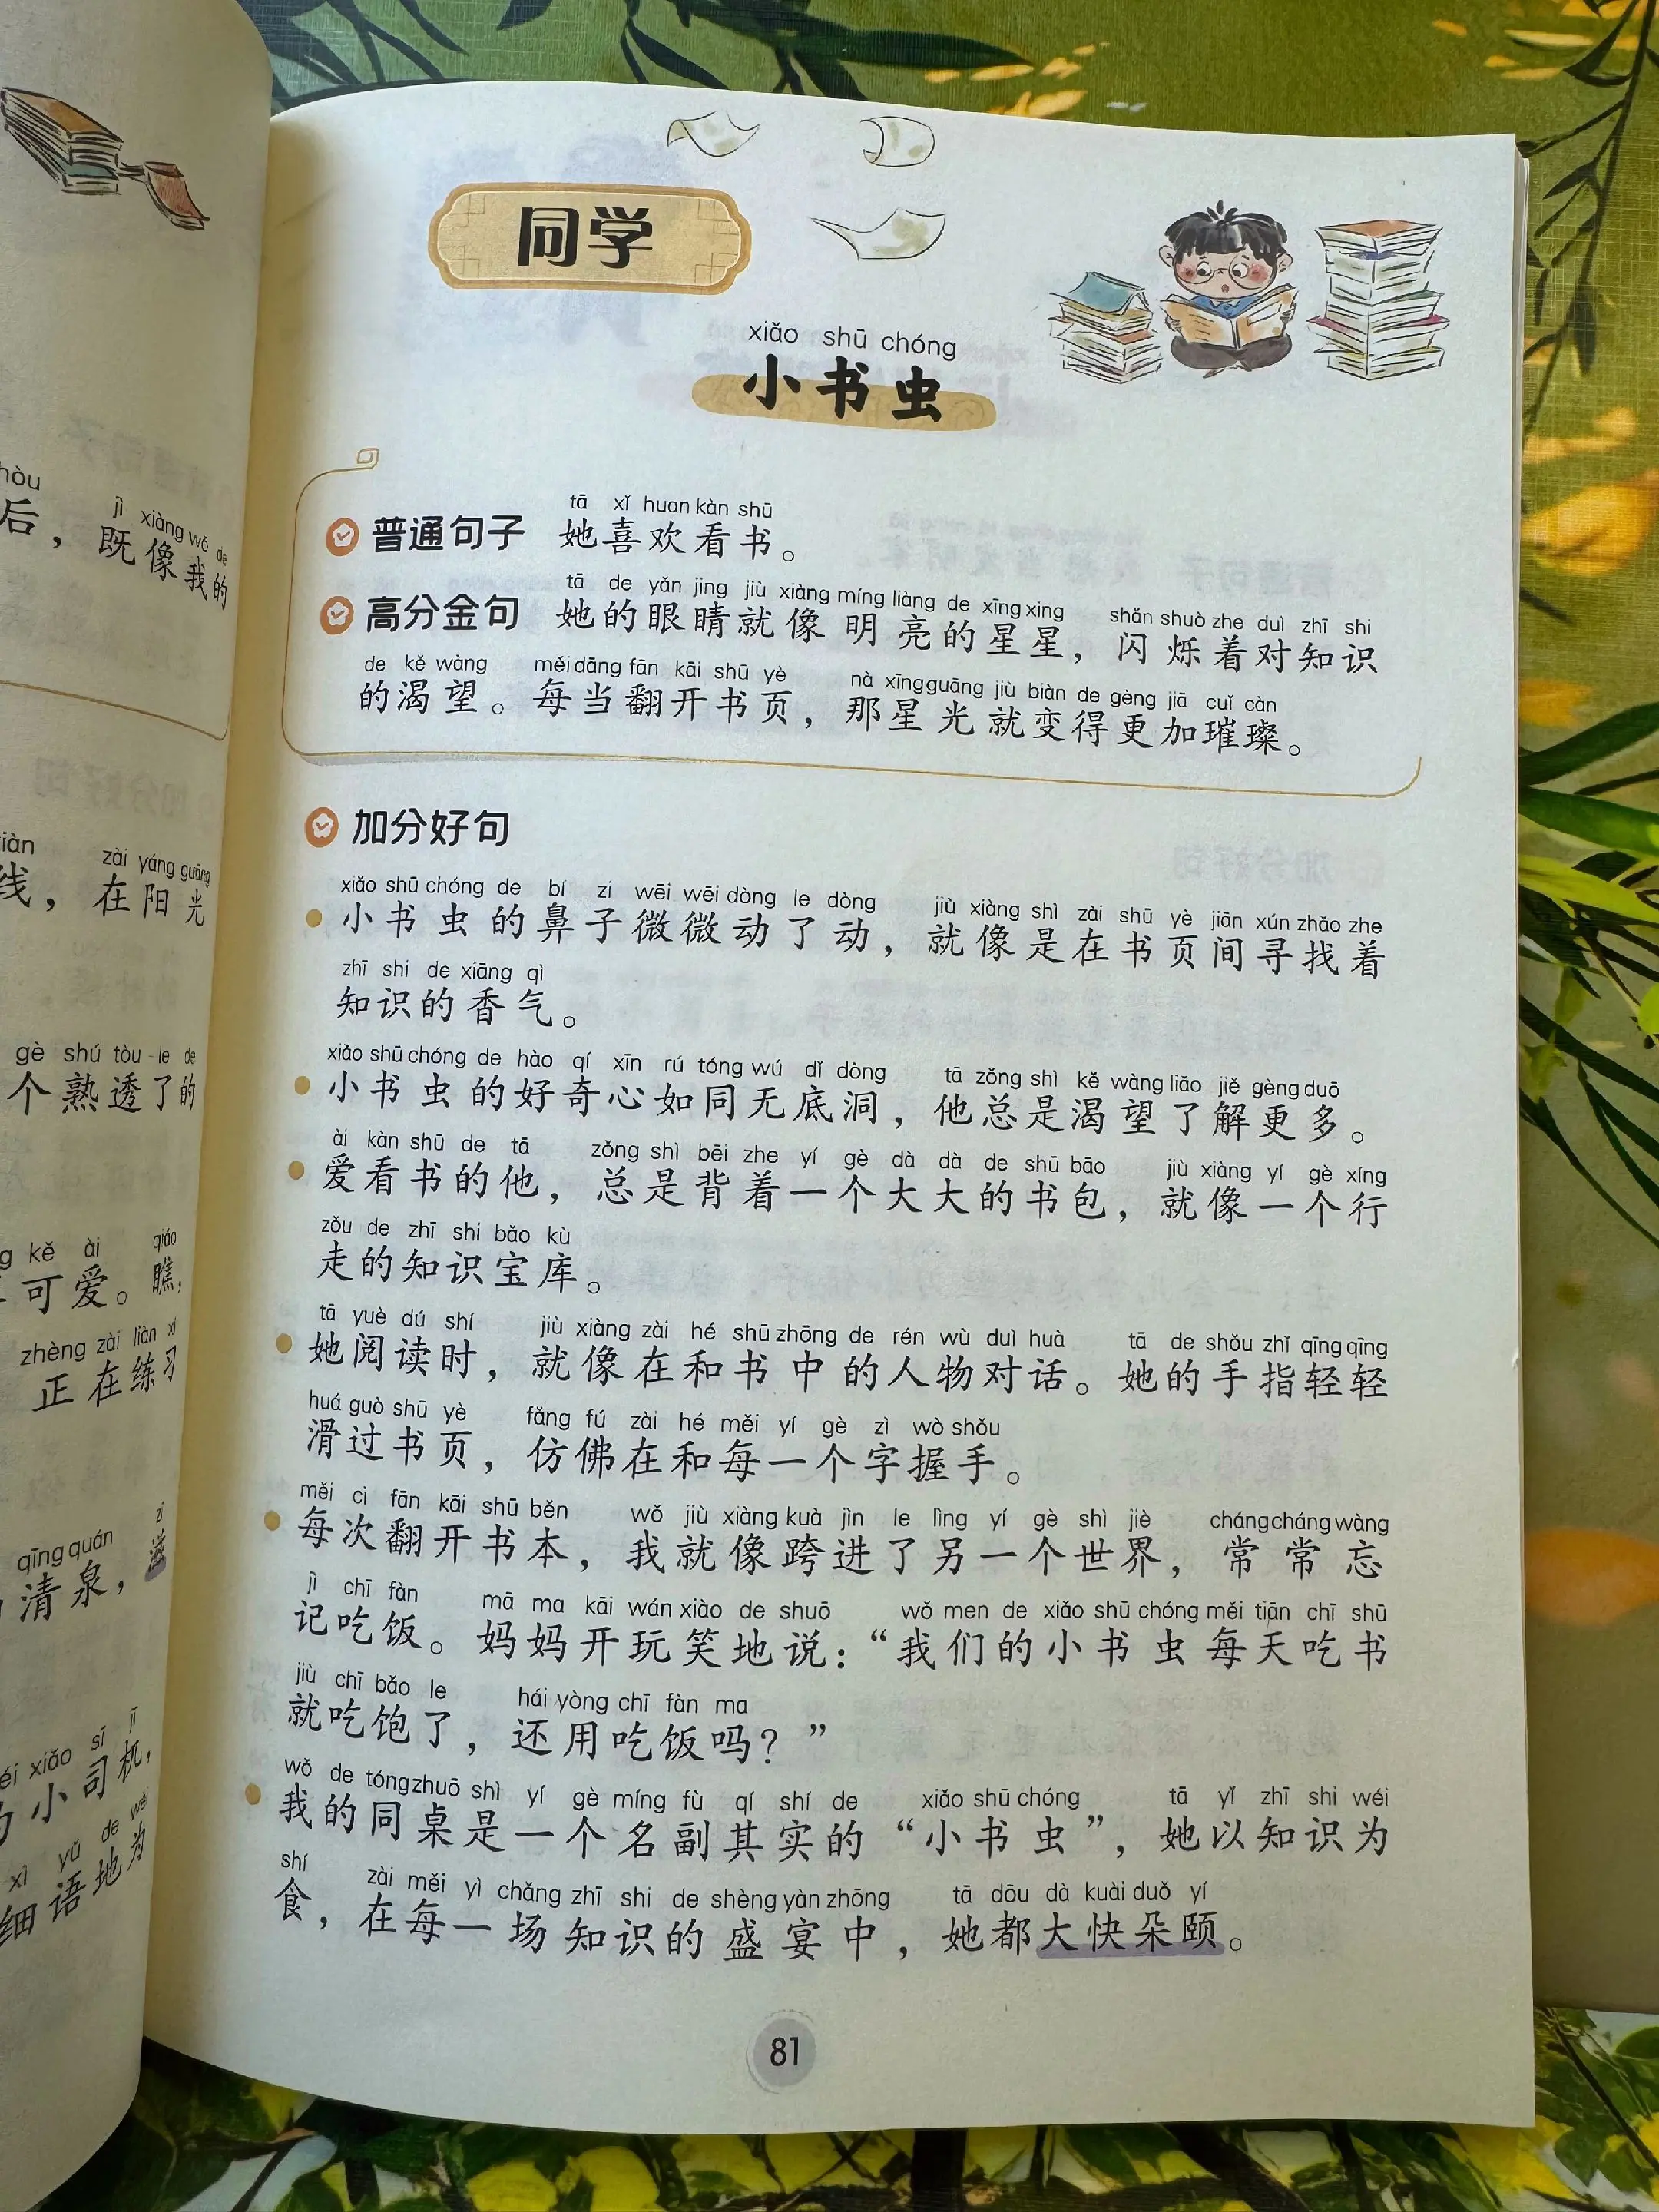 hòu jì xiàng wǒ de
后，既像我的
xiàn zài yáng guāng
线，在阳光
gè shú tòu le de
个熟透了的
kě ài qiáo
可爱。瞧，
zhèng zài liàn xí
正在练习
qīng quán zī
清泉，滋
xiǎo sī jī
小司机，
xì yǔ de wéi
细语地为
同学
xiǎo shū chóng
小书虫
tā xǐ huan kàn shū
普通句子 她喜欢看书。
tā de yǎn jing jiù xiàng míng liàng de xīng xing shǎn shuò zhe duì zhī shi
高分金句 她的眼睛就像明亮的星星，闪烁着对知识
de kě wàng měi dāng fān kāi shū yè nà xīng guāng jiù biàn de gèng jiā cuǐ càn
的渴望。每当翻开书页，那星光就变得更加璀璨。
加分好句
xiǎo shū chóng de bí zi wēi wēi dòng le dòng jiù xiàng shì zài shū yè jiān xún zhǎo zhe
小书虫的鼻子微微动了动，就像是在书页间寻找着
zhī shi de xiāng qì
知识的香气。
xiǎo shū chóng de hào qí xīn rú tóng wú dǐ dòng tā zǒng shì kě wàng liǎo jiě gèng duō
小书虫的好奇心如同无底洞，他总是渴望了解更多。
ài kàn shū de tā zǒng shì bēi zhe yí gè dà dà de shū bāo jiù xiàng yí gè xíng
爱看书的他，总是背着一个大大的书包，就像一个行
zǒu de zhī shi bǎo kù
走的知识宝库。
tā yuè dú shí jiù xiàng zài hé shū zhōng de rén wù duì huà tā de shǒu zhǐ qīng qīng
她阅读时，就像在和书中的人物对话。她的手指轻轻
huá guò shū yè fǎng fú zài hé měi yí gè zì wò shǒu
滑过书页，仿佛在和每一个字握手。
měi cì fān kāi shū běn wǒ jiù xiàng kuà jìn le lìng yí gè shì jiè cháng cháng wàng
每次翻开书本，我就像跨进了另一个世界，常常忘
jì chī fàn mā ma kāi wán xiào de shuō wǒ men de xiǎo shū chóng měi tiān chī shū
记吃饭。妈妈开玩笑地说：“我们的小书虫每天吃书
jiù chī bǎo le hái yòng chī fàn ma
就吃饱了，还用吃饭吗？”
wǒ de tóng zhuō shì yí gè míng fù qí shí de xiǎo shū chóng tā yǐ zhī shi wéi
我的同桌是一个名副其实的“小书虫”，她以知识为
shí zài měi yì chǎng zhī shi de shèng yàn zhōng tā dōu dà kuài duǒ yí
食，在每一场知识的盛宴中，她都大快朵颐。
81